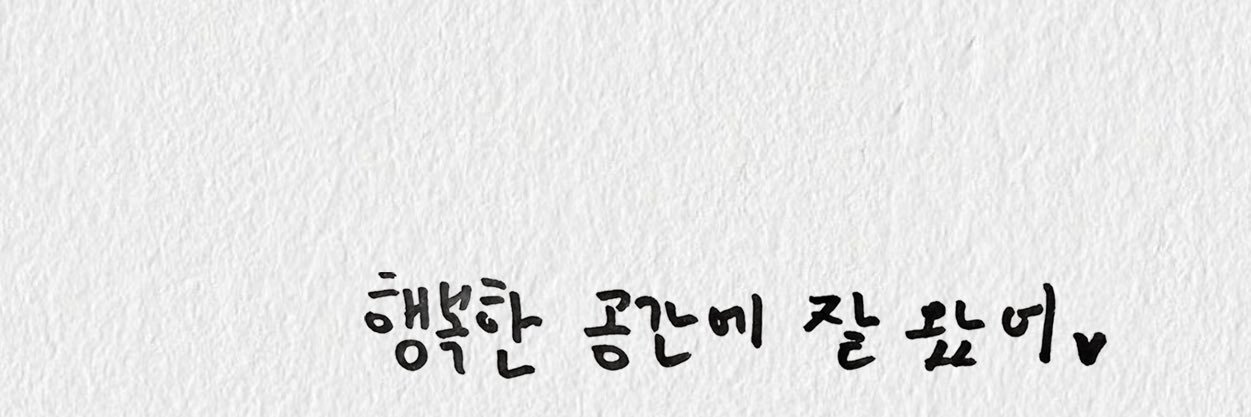 행복한 공간에 잘 왔어♥